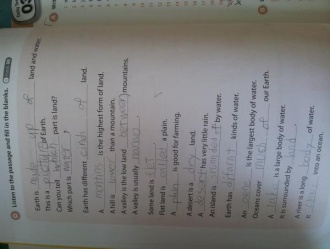 Listen to the passage and fill in the blanks.
Earth is made up of land and water.
This is a of Earth.
Can you tell which part is land?
Which part is water?
Earth has different kinds of land.
A mountain is the highest form of land.
A hill is lower than a mountain.
A valley is the low land between mountains.
A valley is usually narrow.
Some land is flat
Flat land is called a plain.
A plain is good for farming.
A desert is a dry land.
A desert has very little rain.
An island is surrounded by water.
Earth has different kinds of water.
An ocean is the largest body of water.
Oceans cover most of our Earth.
A lake is a large body of water.
It is surrounded by land.
A river is a long body of water.
It into an ocean.